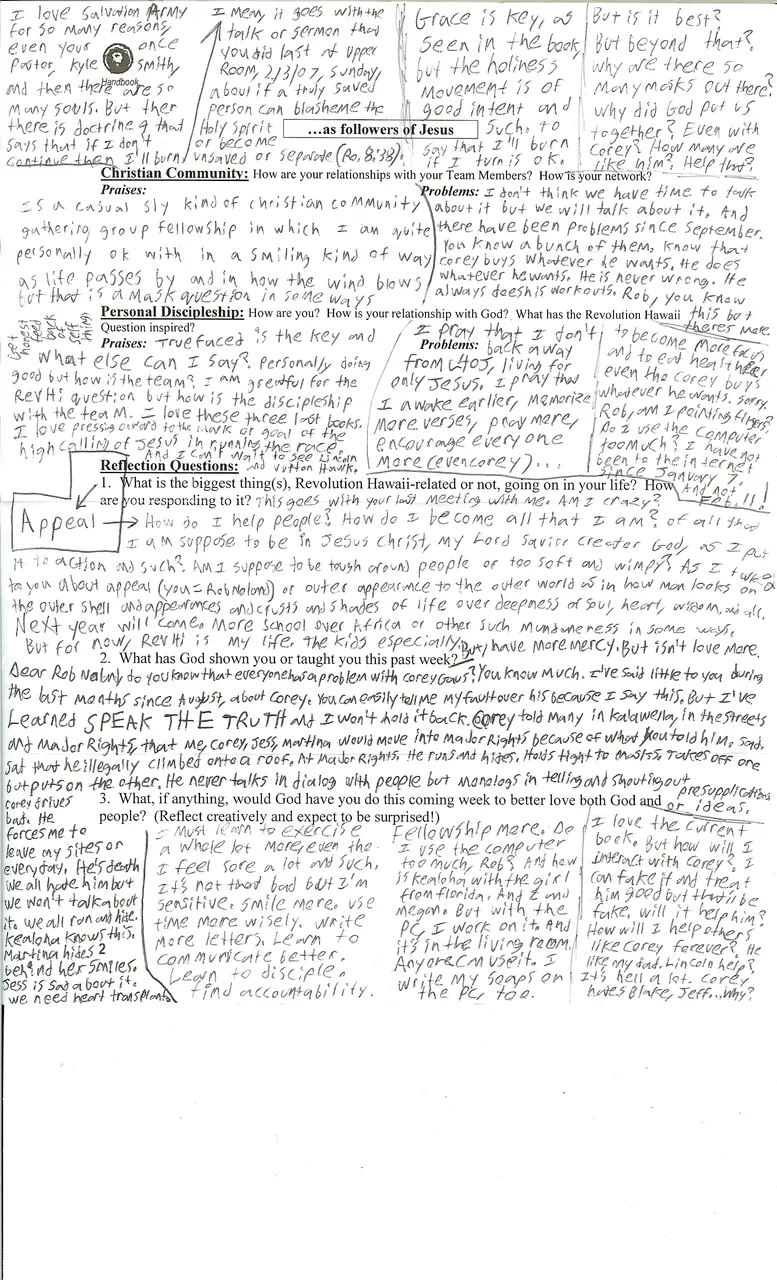 I love Salvation Army
for so many reasons,
even your once
Pastor, Kyle Smith,
Handbook
and then there are so
many souls. But ther
there is doctrine of that
says that if I don't
continue then I'll burn,
I mean, it goes with the
talk or sermon that
you did last at Upper
Room, 2/3/07, Sunday,
about if a truly saved
person can blaspheme the
Holy Spirit
or become
unsaved or separate (Ro. 8:38).
Grace is key, as
seen in the book,
but the holiness
movement is of
good intent and
such. to
say that I'll burn
if I turn is ok.
But is it best?
But beyond that?
Why are there so
many masks out there?
Why did God put us
together? Even with
Corey? How many are
like him? Help that?
...as followers of Jesus
Christian Community: How are your relationships with your Team Members? How is your network?
Praises:
Is a casual sly kind of christian community
gathering group fellowship in which I am quite
personally ok with in a smiling kind of way
as life passes by and in how the wind blows
but that is a mask question in some ways
Problems: I don't think we have time to talk
about it but we will talk about it. And
there have been problems since September.
You know a bunch of them. Know that
Corey buys whatever he wants. He does
whatever he wants. He is never wrong. He
always does his workouts. Rob, you know
this but
theres more.
Personal Discipleship: How are you? How is your relationship with God? What has the Revolution Hawaii
Question inspired?
Get
honest
feed
back
of
self
thing
Praises: Truefaced is the key and
what else can I say? Personally doing
good but how is the team? I am greatful for the
RevHi question but how is the discipleship
with the team. I love these three last books.
I love pressing onward to the mark or goal of the
high calling of Jesus in running the race.
And I can't wait to see Lincoln
and Vutton Hawk.
Problems:
I pray that I don't
back away
from 1405, living for
only Jesus. I pray that
I awake earlier, memorize
more verses, pray more,
encourage everyone
more (even corey)...
to become more focus
and to eat healthier
even the Corey buys
whatever he wants. Sorry.
Rob, am I pointing fingers?
Do I use the computer
too much? I have not
been to the internet
since January 7.
And not
Feb. 11!
Reflection Questions:
1. What is the biggest thing(s), Revolution Hawaii-related or not, going on in your life? How
are you responding to it? This goes with your last meeting with me. Am I crazy?
Appeal
How do I help people? How do I become all that I am? of all that
I am suppose to be in Jesus Christ, my Lord Savior Creator God, as I put
it to action and such? Am I suppose to be tough around people or too soft and wimpy? As I talked
to you about appeal (you = Rob Noland) or outer appearance to the outer world as in how man looks on a
the outer shell and appearances and crusts and shades of life over deepness of soul, heart, wisdom, and all.
Next year will come. More school over Africa or other such mundaneness in some ways.
But for now, RevHi is my life. The kids especially. But, have more mercy. But isn't love more.
2. What has God shown you or taught you this past week?
Dear Rob Nalan, do you know that everyone has a problem with Corey Gaus? You know much. I've said little to you during
the last months since August, about Corey. You can easily tell me my fault over his because I say this. But I've
Learned SPEAK THE TRUTH and I won't hold it back. Corey told many in Kalawena, in the streets
and Mador Rights, that me, Corey, Jess, Martina would move into Mador Rights because of what you told him. Sad.
Sat that he illegally climbed onto a roof. At Mador Rights. He runs and hides. Holds tight to masks. Takes off one
but puts on the other. He never talks in dialog with people but monologs in telling and shouting out
presupplications
or ideas.
3. What, if anything, would God have you do this coming week to better love both God and
people? (Reflect creatively and expect to be surprised!)
Corey drives
bad. He
forces me to
leave my sites or
everyday. He's death
we all hate him but
we won't talk about
it. we all run and hide.
Kealoha knows this.
Martina hides 2
behind her smiles.
Jess is sad about it.
we need heart transplants
I must learn to exercise
a whole lot more, even the
I feel sore a lot and such.
It's not that bad but I'm
sensitive. Smile more. Use
time more wisely. Write
more letters. Learn to
communicate better.
Learn to disciple.
Find accountability.
Fellowship more. Do
I use the computer
too much, Rob? And how
is kealoha with the girl
from florida. And I and
megan. But with the
PC, I work on it. And
it's in the living room.
Anyone can use it. I
write my soaps on
the PC, too.
I love the current
book. But how will I
interact with Corey? I
can fake it and treat
him good but that'll be
fake, will it help him?
How will I help others
like Corey forever? He
like my dad. Lincoln help?
It's hell a lot. Corey
hates Blake, Jeff...why?